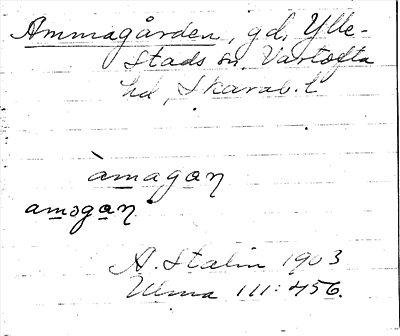 Ammagården, gd, Ylle-
stads sn, Vartofta
hd, Skarab. l
àmagαŋ
amǝgαŋ
A. Stalin 1903
Ulma 111:456.